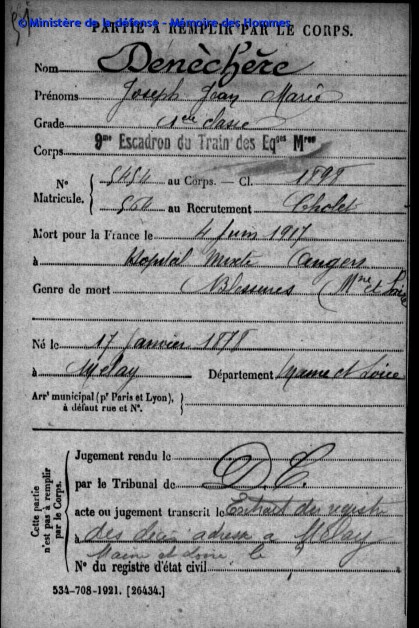 © Ministère de la défense - Mémoire des Hommes
PARTIE À REMPLIR PAR LE CORPS.
Nom Dénéchère
Prénoms Joseph Jean Marie
Grade 2me classe
Corps 9me Escadron du Train des Eqges Mres
N° Matricule. 5454 au Corps. — Cl. 1898
504 au Recrutement Cholet
Mort pour la France le 4 Juin 1917
à Hopital mixte Angers
Genre de mort Blessures (Mne et Loire
Né le 17 Janvier 1878
à Melay Département Maine et Loire
Arrt municipal (pr Paris et Lyon), à défaut rue et N°.
Cette partie n'est pas à remplir par le Corps.
Jugement rendu le
par le Tribunal de D.C.
acte ou jugement transcrit le Extrait du registre
à des décès adressé à Melay
Maine et Loire le
N° du registre d'état civil
534-708-1921. [26434.]